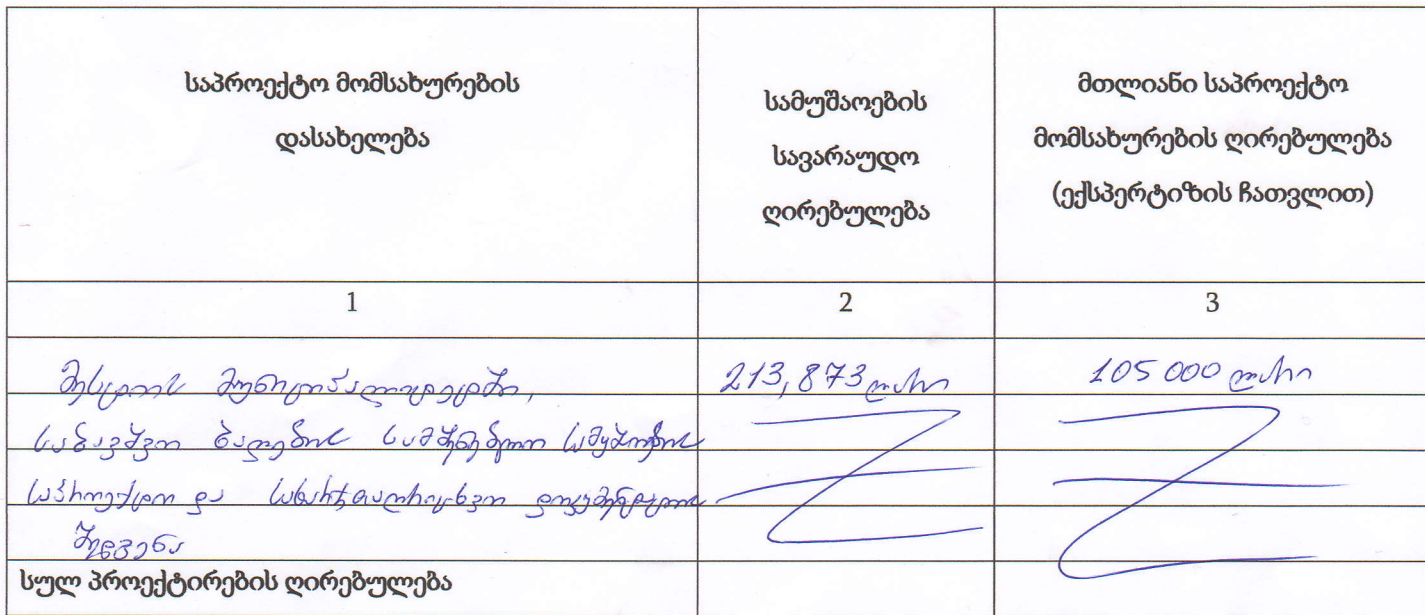 საპროექტო მომსახურების
დასახელება
სამუშაოების
სავარაუდო
ღირებულება
მთლიანი საპროექტო
მომსახურების ღირებულება
(ექსპერტიზის ჩათვლით)
1 2 3
მესტიის მუნიციპალიტეტში, 213,873 ლარი 105 000 ლარი
საბავშვო ბაღების სამშენებლო სამუშაოების
საპროექტო და სახარჯთაღრიცხვო დოკუმენტაციის
შედგენა
სულ პროექტირების ღირებულება